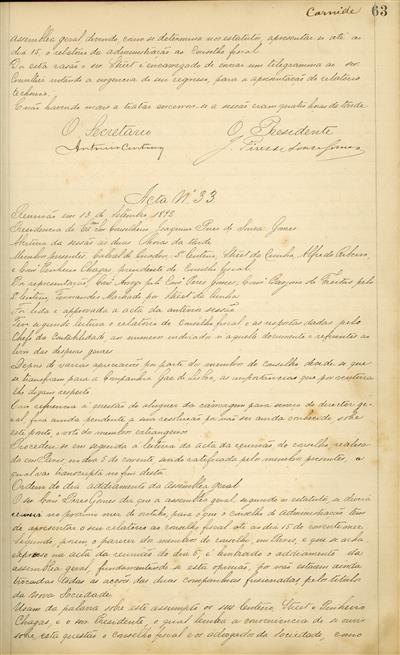 Carnide 63
Assemblea geral devendo, como se determina nos estatutos, apresentar-se até ao
dia 15, o relatorio da administração ao Conselho fiscal
Por esta rasão o snr Street é encarregado de enviar um telegramma ao snr
Conselheiro notando a urgencia do seu regresso, para a apresentação do relatorio
technico.
E não havendo mais a tratar encerrou-se a sessão eram quatro horas da tarde
O Secretario O Presidente
Antonio Centeno J. Pires de Sousa Gomes
Acta Nº 33
Reunião em 13 de Setembro 1892
Presidencia do Exmo Snr Conselheiro Joaquim Pires de Sousa Gomes
Abertura da sessão ás duas horas da tarde
Membros presentes, Centeno, Street da Cunha, Alfredo Ribeiro,
e Pinheiro Chagas, presidente do Conselho fiscal.
Por representação, Pires Gomes, de Freitas pelo
Snr Centeno, Fernandes Machado por Street da Cunha
Foi lida e approvada a acta da anterior sessão
Teve segunda leitura o relatorio do Conselho fiscal e as respostas dadas pelo
Chefe da Contabilidade, ao numero indicado n'aquelle documento e referentes ao
livro das despezas geraes
Depois de varias apreciações por parte dos membros do conselho decide-se que
se transfiram para a Companhia Gaz de Lisboa, as importancias que por ventura
lhe digam respeito
Com referencia á questão do aluguer da carruagem para serviço do director ge-
ral, fica ainda pendente a sua resolução por não ser ainda conhecido sobre
este ponto o voto dos membros extrangeiros
Procedeu-se em seguida á leitura da acta da reunião do conselho, realisa-
da em Paris, no dia 5 do corrente, sendo ratificada pelos membros presentes, a
qual vae transcripta no fim desta
Ordem do dia addiamento da assemblea geral
O snr Cons. Pires Gomes diz que a assemblea geral segundo os estatutos, se deveria
reunir no proximo mez de outubro, para o que o conselho de administração tem
de apresentar o seu relatorio ao conselho fiscal até ao dia 15 do corrente mez.
Segundo, porem o parecer dos membros do conselho, em Paris, e que se acha
expresso na acta da reunião do dia 5, é lembrado o addiamento da
assemblea geral, fundamentando-se esta opinião, por não estarem ainda
trocadas todas as acções das duas companhias fusionadas pelos titulos
da nova Sociedade.
Usam da palavra sobre este assumpto os snrs Centeno, Street e Pinheiro
Chagas, e o snr Presidente, o qual lembra a conveniencia de se ouvir
sobre esta questão o conselho fiscal e os advogados da Sociedade, como